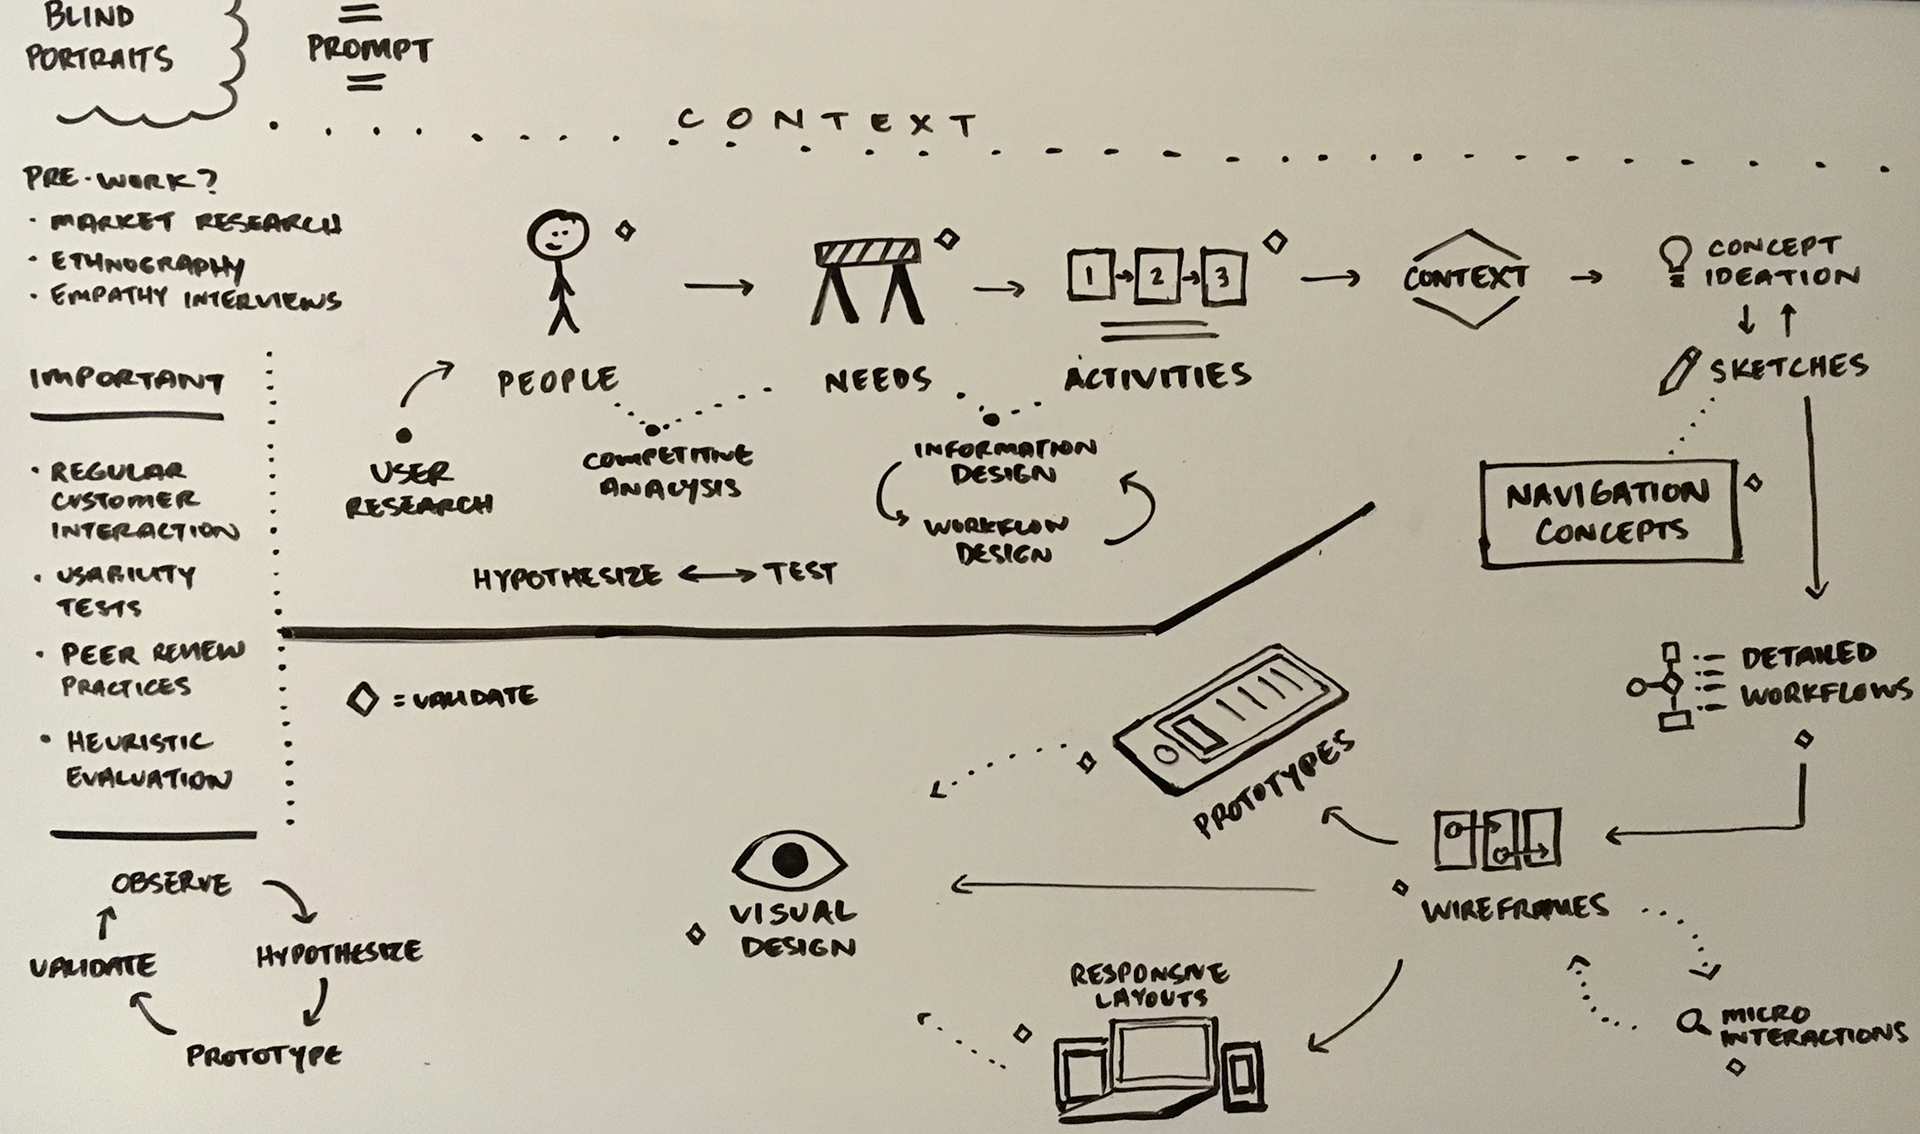 BLIND
PORTRAITS
PROMPT
CONTEXT
PRE-WORK?
· MARKET RESEARCH
· ETHNOGRAPHY
· EMPATHY INTERVIEWS
IMPORTANT
· REGULAR
CUSTOMER
INTERACTION
· USABILITY
TESTS
· PEER REVIEW
PRACTICES
· HEURISTIC
EVALUATION
OBSERVE
HYPOTHESIZE
PROTOTYPE
VALIDATE
USER
RESEARCH
PEOPLE
COMPETITIVE
ANALYSIS
NEEDS
1 2 3
ACTIVITIES
INFORMATION
DESIGN
WORKFLOW
DESIGN
HYPOTHESIZE ↔ TEST
◇ = VALIDATE
CONTEXT
CONCEPT
IDEATION
SKETCHES
NAVIGATION
CONCEPTS
DETAILED
WORKFLOWS
WIREFRAMES
MICRO
INTERACTIONS
PROTOTYPES
RESPONSIVE
LAYOUTS
VISUAL
DESIGN